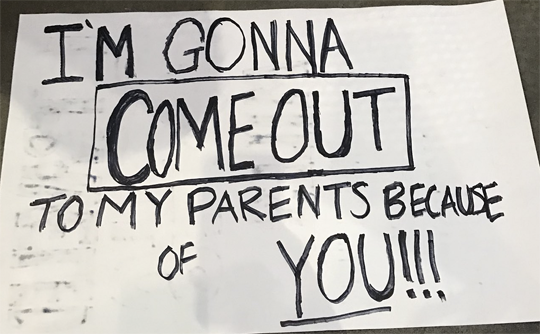 I'M GONNA
COME OUT
TO MY PARENTS BECAUSE
OF YOU!!!